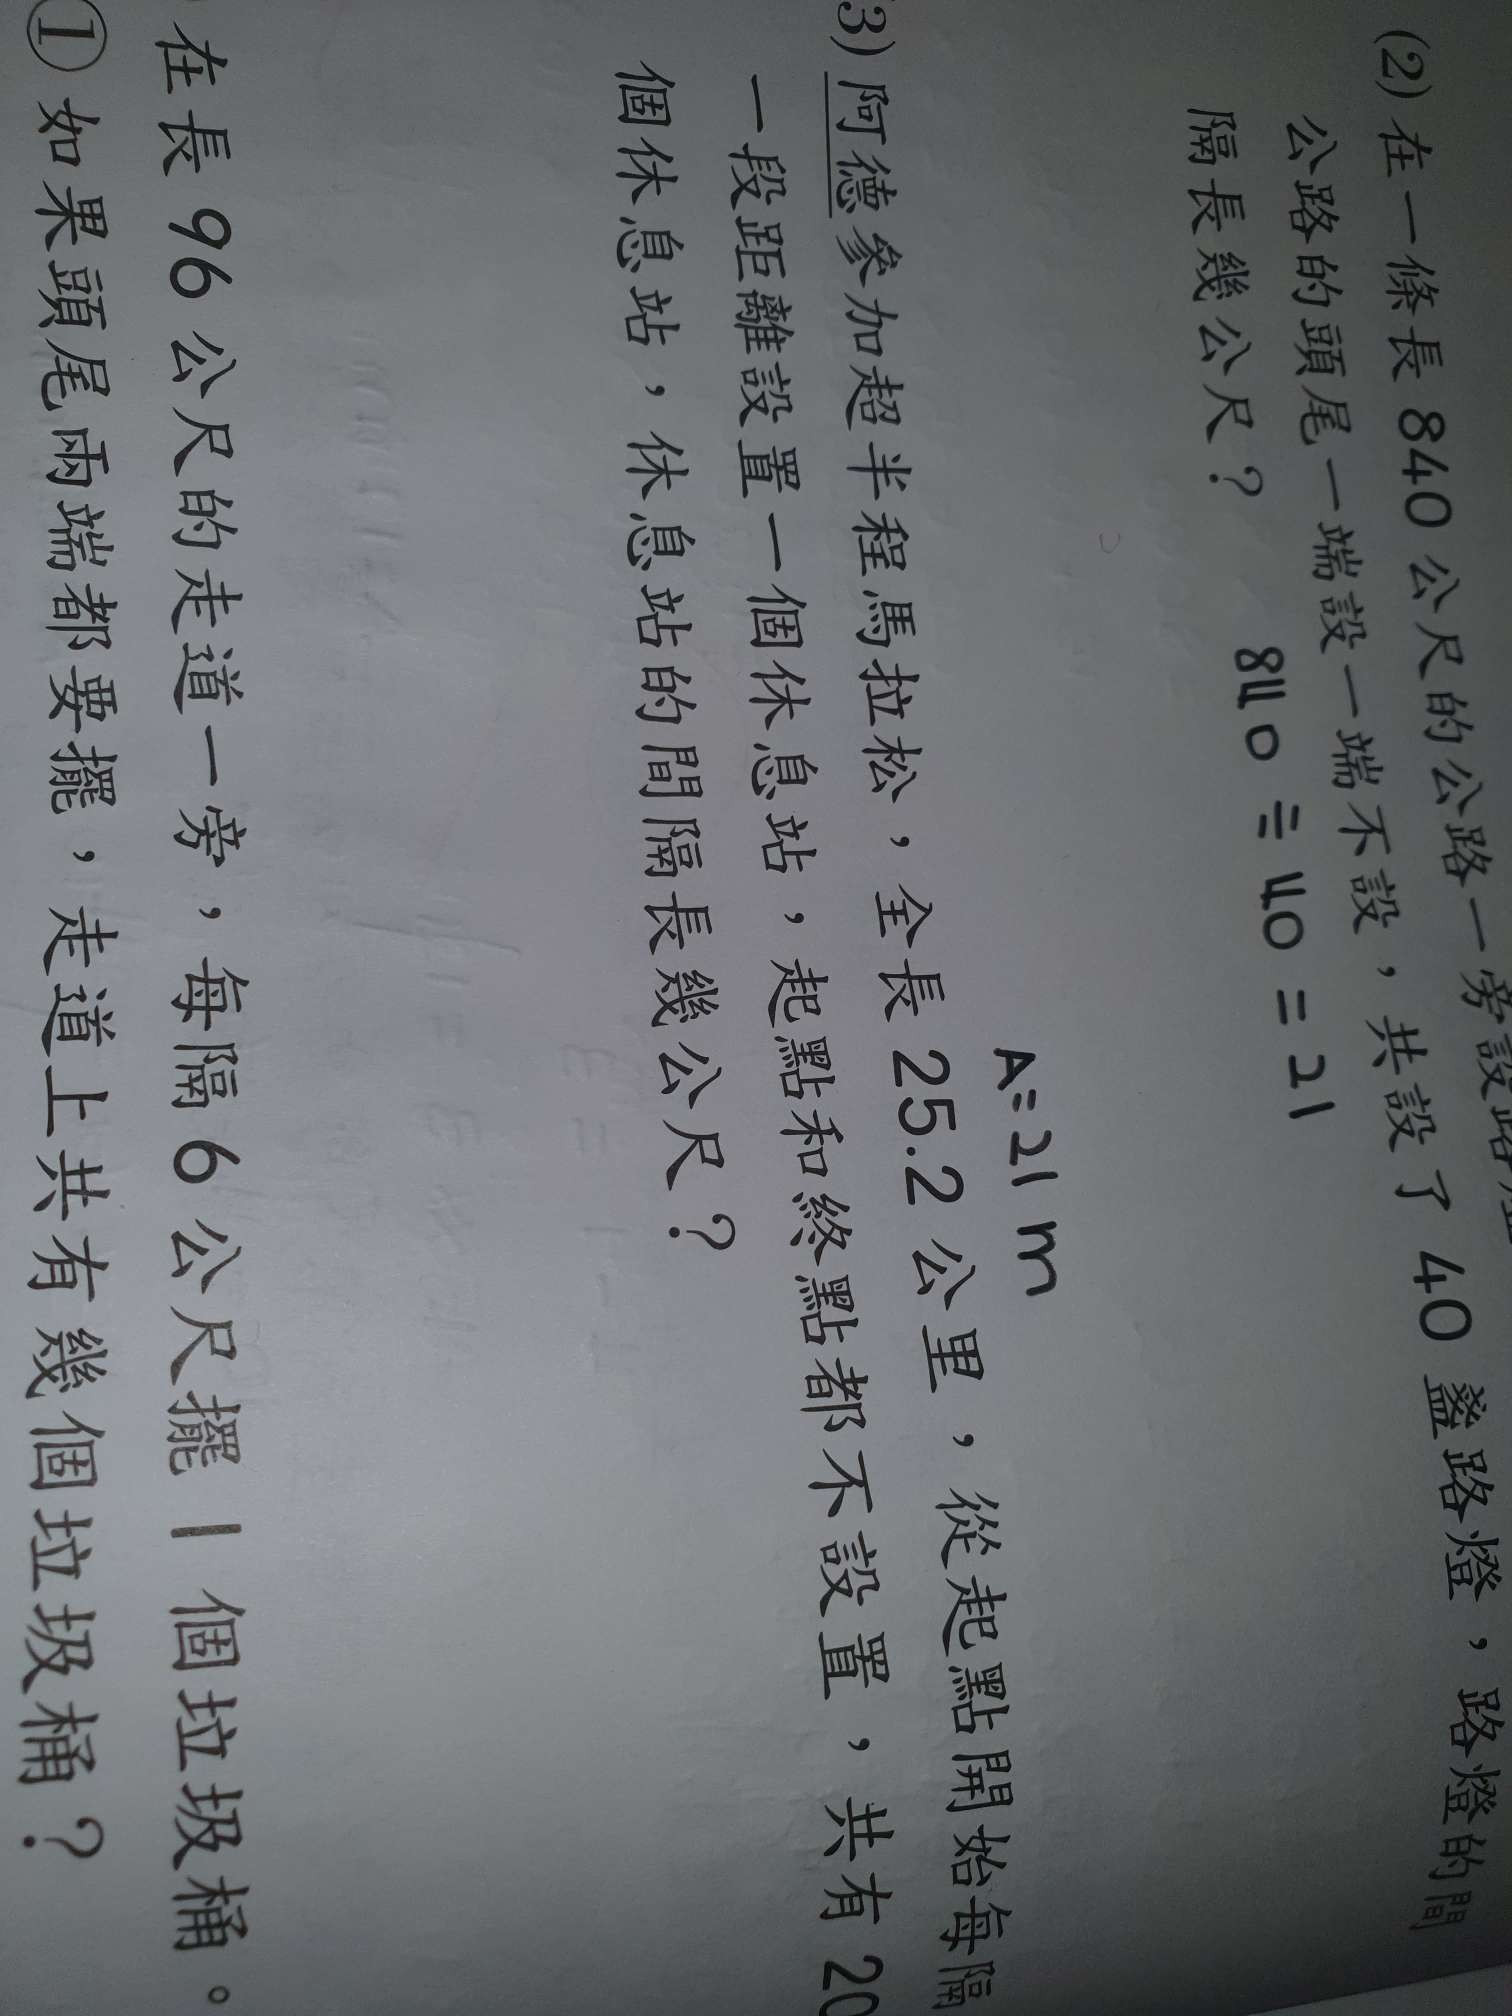 (2) 在一條長 840 公尺的公路一旁設路燈
公路的頭尾一端設一端不設，共設了 40 盞路燈，路燈的間
隔長幾公尺？
840 ÷ 40 = 21
A= 21 m
3) 阿德參加超半程馬拉松，全長 25.2 公里，從起點開始每隔
一段距離設置一個休息站，起點和終點都不設置，共有 20
個休息站，休息站的間隔長幾公尺？
在長 96 公尺的走道一旁，每隔 6 公尺擺 1 個垃圾桶。
① 如果頭尾兩端都要擺，走道上共有幾個垃圾桶？